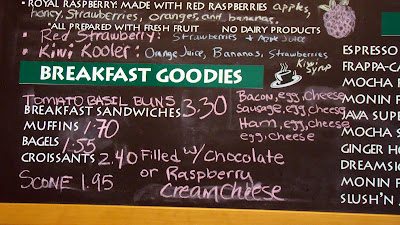 • ROYAL RASPBERRY: MADE WITH RED RASPBERRIES apples,
honey, Strawberries, oranges, and bananas.
*ALL PREPARED WITH FRESH FRUIT NO DAIRY PRODUCTS
• Red Strawberry: Strawberries & Apple Juice
• Kiwi Kooler: Orange Juice, Bananas, Strawberries
Kiwi Syrup
BREAKFAST GOODIES
TOMATO BASIL BUNS
BREAKFAST SANDWICHES 3.30
Bacon, egg, cheese
Sausage, egg, cheese
Ham, egg, cheese
egg, cheese
MUFFINS 1.70
BAGELS 1.55
CROISSANTS 2.40 Filled w/ Chocolate
or Raspberry
Cream Cheese
SCONE 1.95
ESPRESSO
FRAPPA-CA
MOCHA
MONIN F
JAVA SUPER
MOCHA S
GINGER HO
DREAMSIC
MONIN F
SLUSH'N